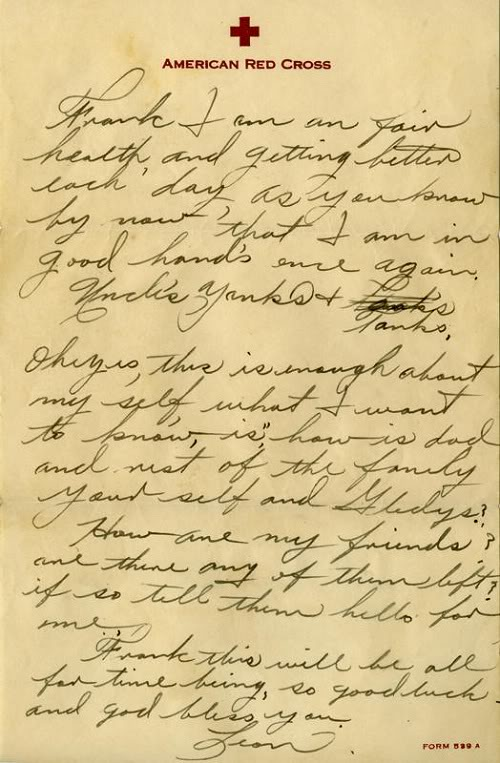 AMERICAN RED CROSS
Frank I am an fair
health and getting better
each day, as you know
by now that I am in
good hand's once again.
Uncle's Yanks & Tanks
Tanks,
Oh yes, this is enough about
my self what I want
to know, is, how is dad
and rest of the family
your self and Gladys?
How are my friends?
are there any of them left?
if so tell them hello for
me,
Frank this will be all
for time being, so good luck
and god bless you.
Leon
FORM 539 A